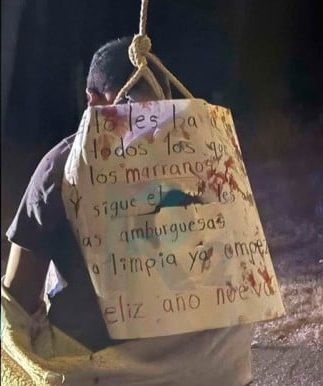 les
todos los
los marranos
y sigue el les
as amburguesas
limpia ya empe
eliz año nuevo